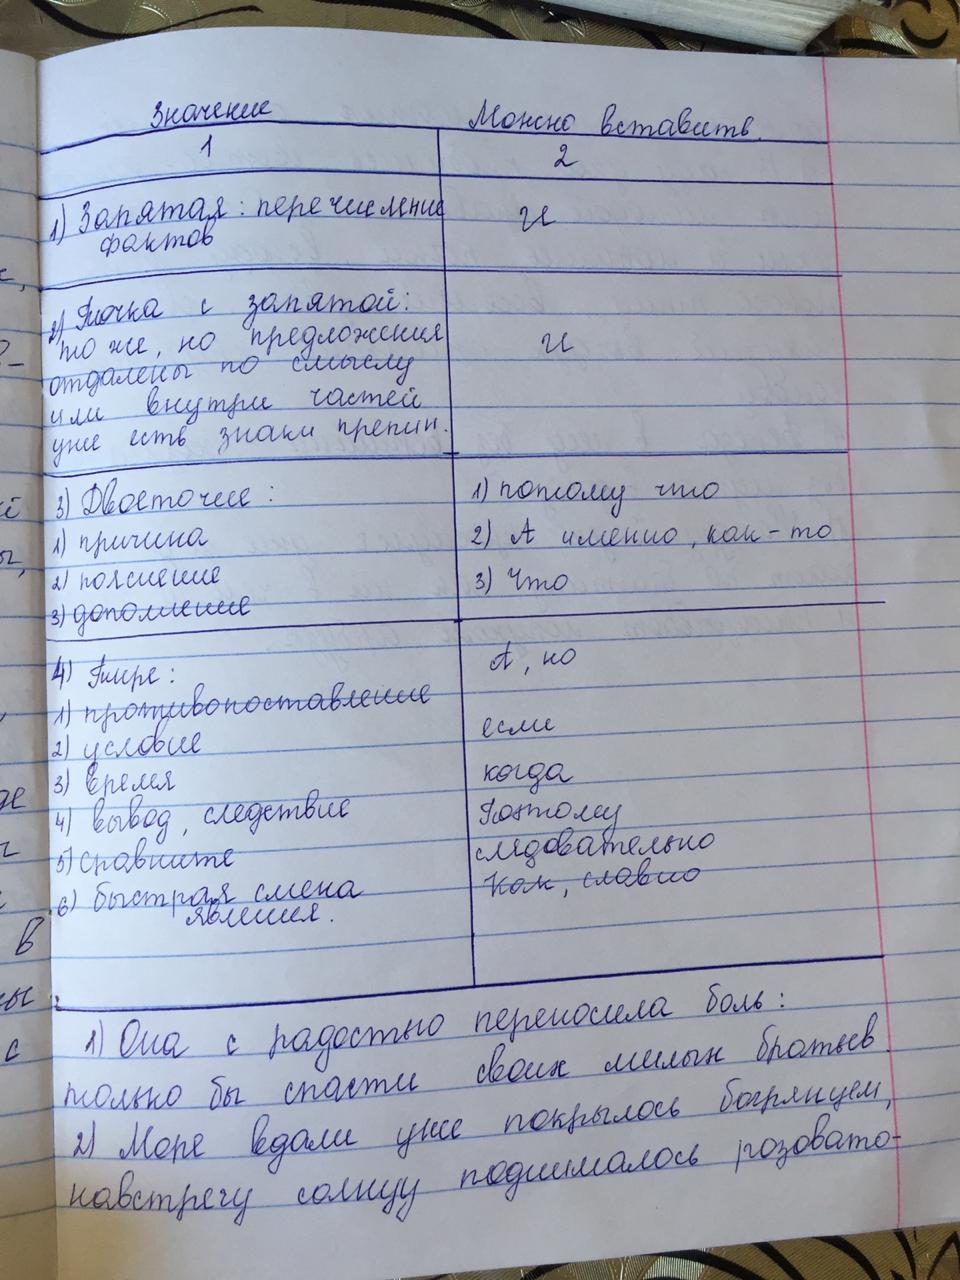 Значение Можно вставить.
1 2
1) Запятая: перечисление и
фактов
2) Точка с запятой:
то же, но предложения и
отдалены по смыслу
или внутри частей
уже есть знаки препин.
3) Двоеточие: 1) потому что
1) причина 2) А именно, как-то
2) пояснение 3) Что
3) дополнение
4) Тире: А, но
1) противопоставление
2) условие если
3) время когда
4) вывод, следствие Поэтому
5) сравните следовательно
6) быстрая смена Как, славно
явления.
1) Она с радостью переносила боль:
только бы спасти своих милых братьев.
2) Море вдали уже покрылось багрянцем,
навстречу солнцу поднималось розовато-
е,
де
в
ны
с